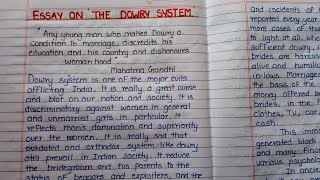 ESSAY ON THE DOWRY SYSTEM
"Any young man who makes Dowry a
condition to marriage, discredits his
education and his country and dishonours
woman hood".
Mahatma Gandhi
Dowry system is one of the major evils
afflicting India. It is really a great curse
and blot on our nation and society. It is
discriminatory against women in general
and unmarried girls in particular. It
reflects man's domination and superiority
over the women. It is really sad that
outdated and orthodox system like dowry
still prevail in Indian society. It reduce
the bridegroom and his parents to the
status of beggars and exploiters, and the
and incidents of
reported every year
more cases of this
to light at all.
sufficient dowry,
brides are harassed
alive and humili
in-laws. Marriages
the basis of the
money offered b
brides, in the f
clothes, T.V., car,
cash.
This immo
generated black
and many fina
various psycholo
In ancie